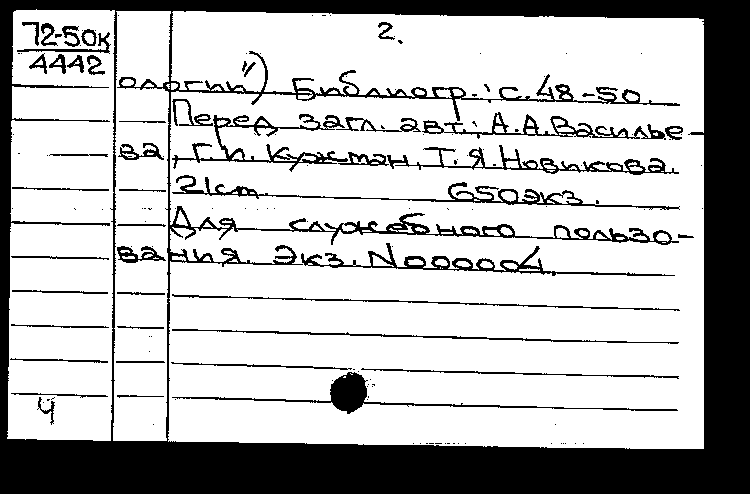 2.
72-50к
4442
ологии") Библиогр.: с. 48-50.
Перед загл. авт.: А.А.Василье-
ва, Г.И. Кужман, Т.Я.Новикова.
21см. 650экз.
Для служебного пользо-
вания. Экз.N000004.
Ч